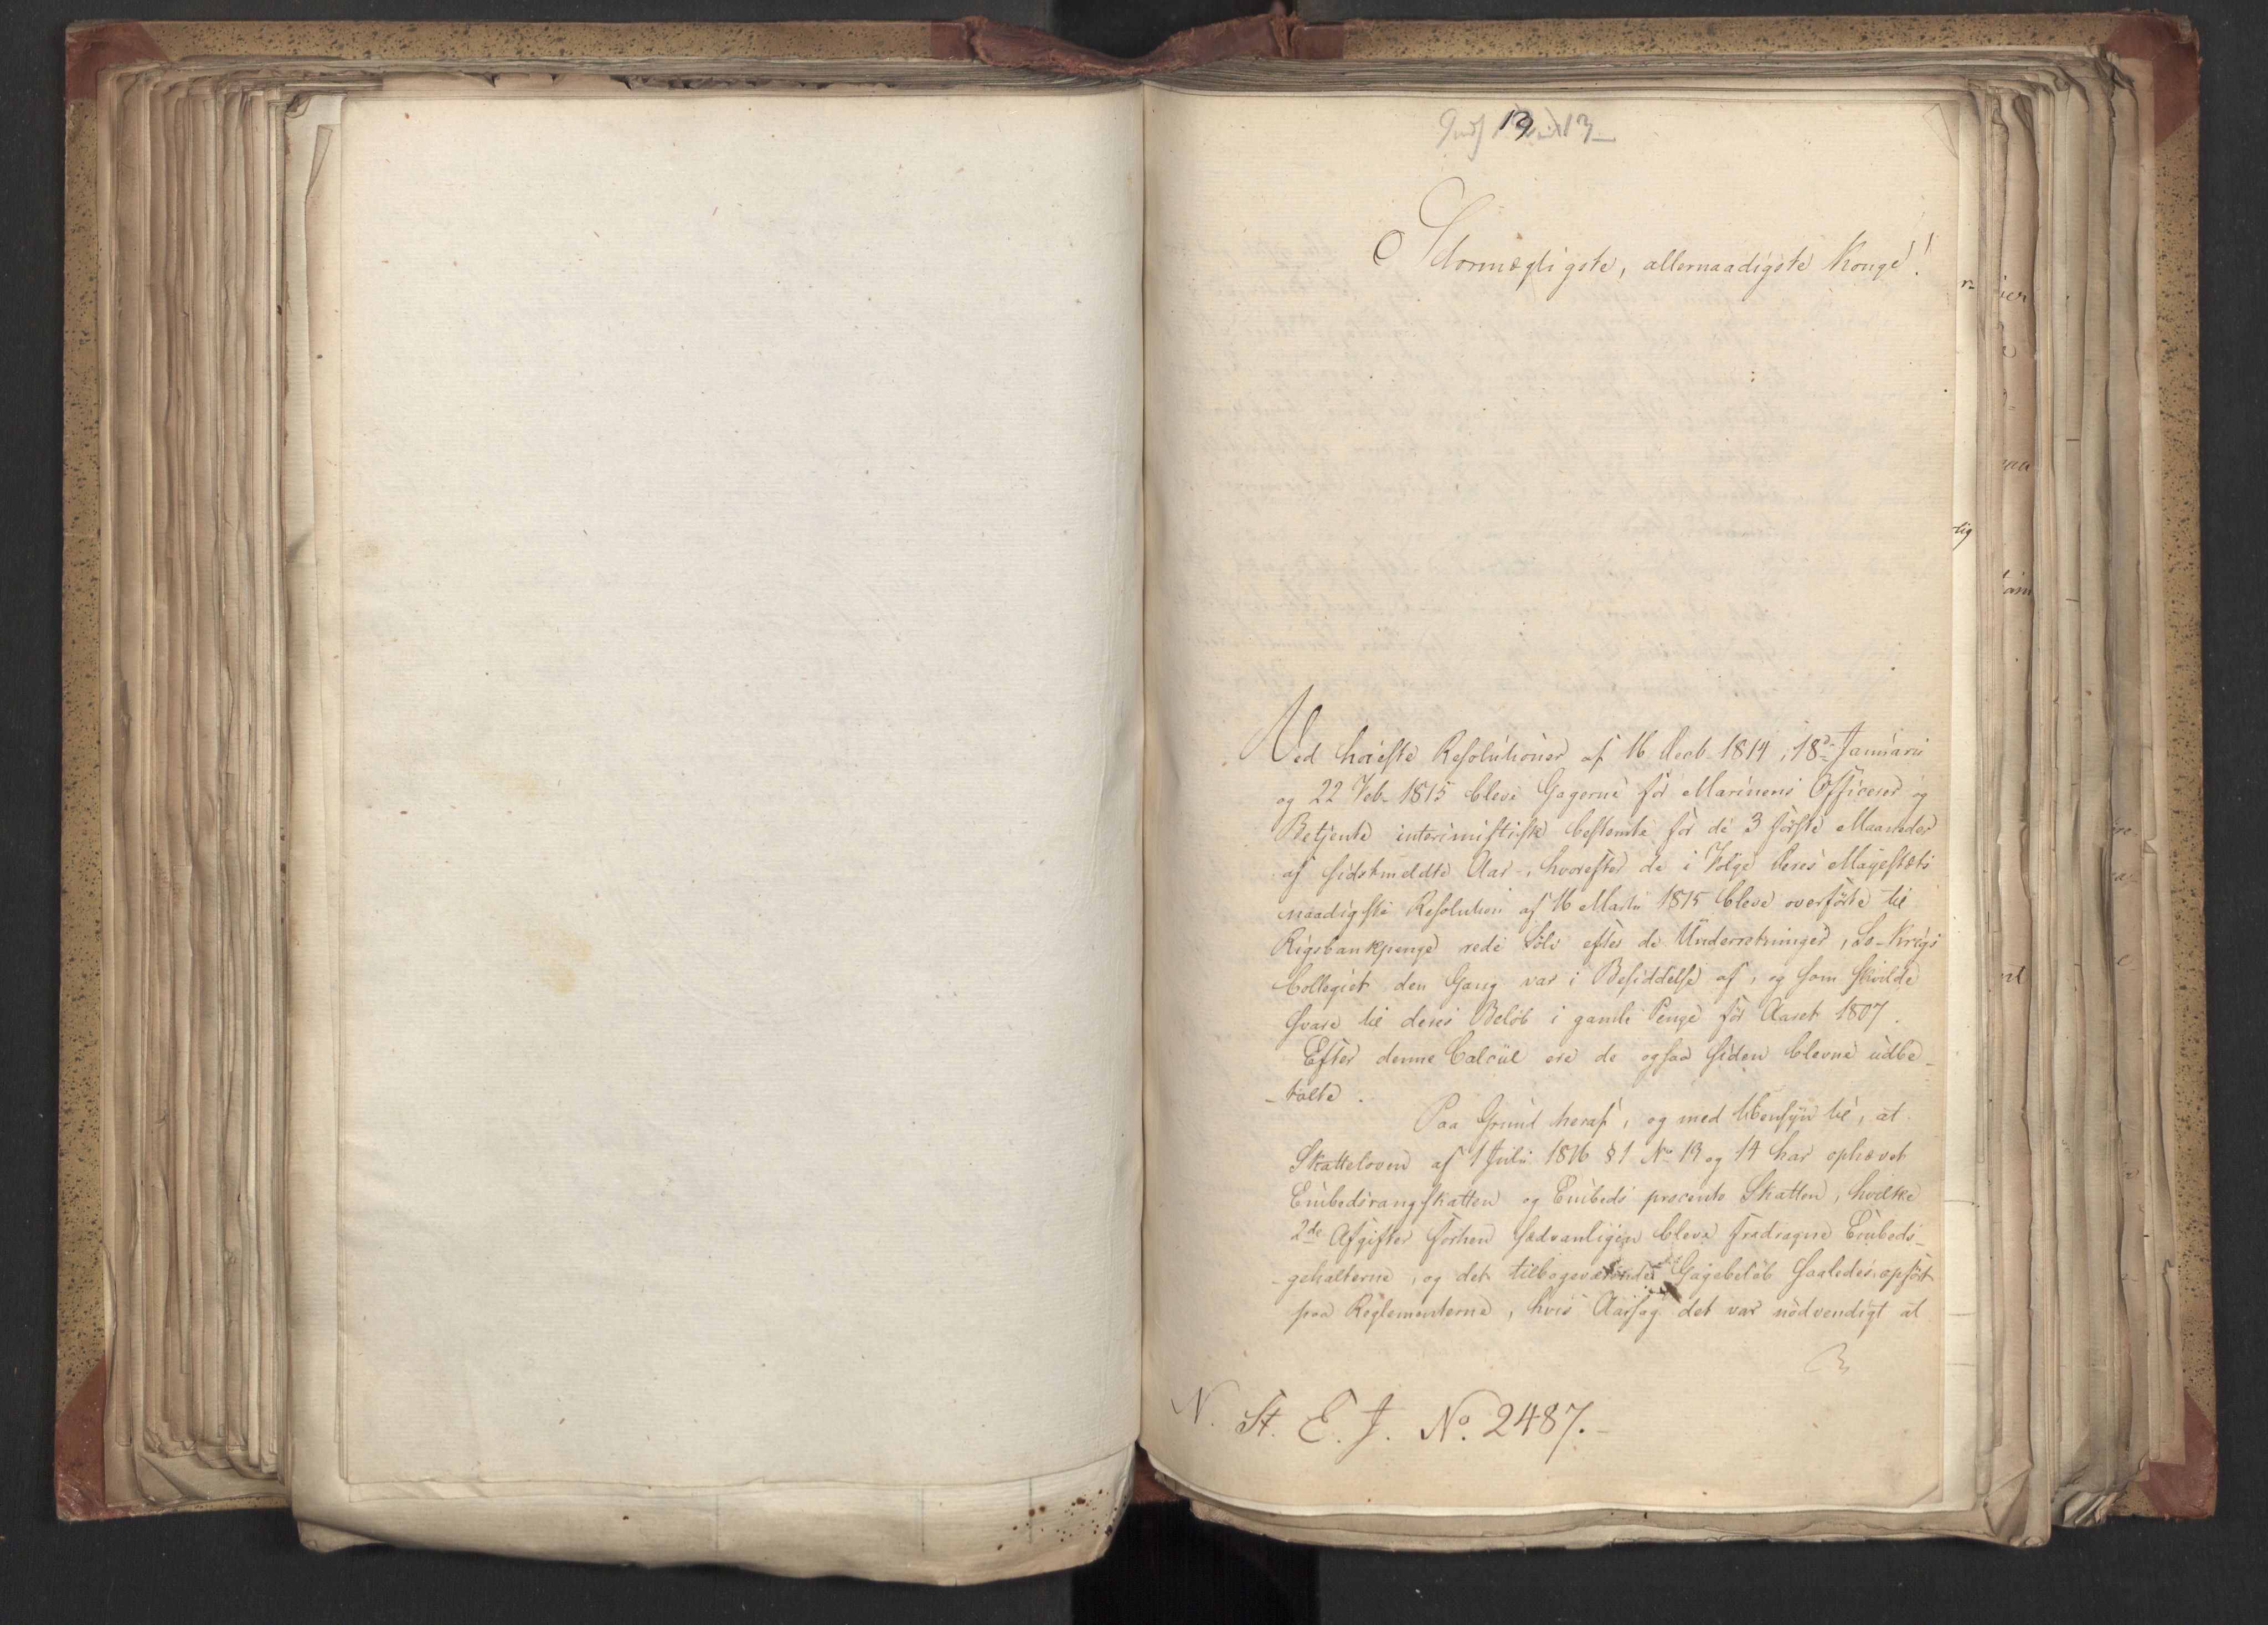 13
Stormægtigste, allernaadigste Konge!
Ved høieste Resolutioner af 16 Decb. 1814, 18de Januarii
og 22 Feb. 1815 bleve Gagerne for Marinens Officerer og
Betjente interimistisk bestemte for de 3 første Maaneder
af sidstmeldte Aar, hvorefter de i Følge Deres Majestæts
naadigste Resolution af 16 Martii 1815 bleve overførte til
Rigsbankpenge rede Sølv efter de Underretninger, Sø-Krigs
Collegiet den Gang var i Besiddelse af, og som skulde
svare til deres Beløb i gamle Penge for Aaret 1807.
Efter denne Calcül ere de ogsaa siden blevne udbe-
-talte.
Paa Grund heraf, og med Hensyn til, at
Skatteloven af 1 Julii 1816 § 1 No 13 og 14 har ophævet
Embedsrangskatten og Embeds procento Skatten, hvilke
2de Afgifter forhen sædvanligen bleve fradragne Embeds-
-gehalterne, og det tilbageværende Gagebeløb saaledes opført
paa Reglementerne, hvis Aarsag det var nødvendigt at
N. St. E. J. No. 2487.